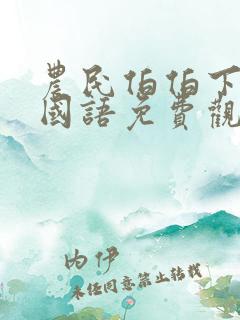 農民伯伯下
國語免費觀
内伊
未经同意禁止转载